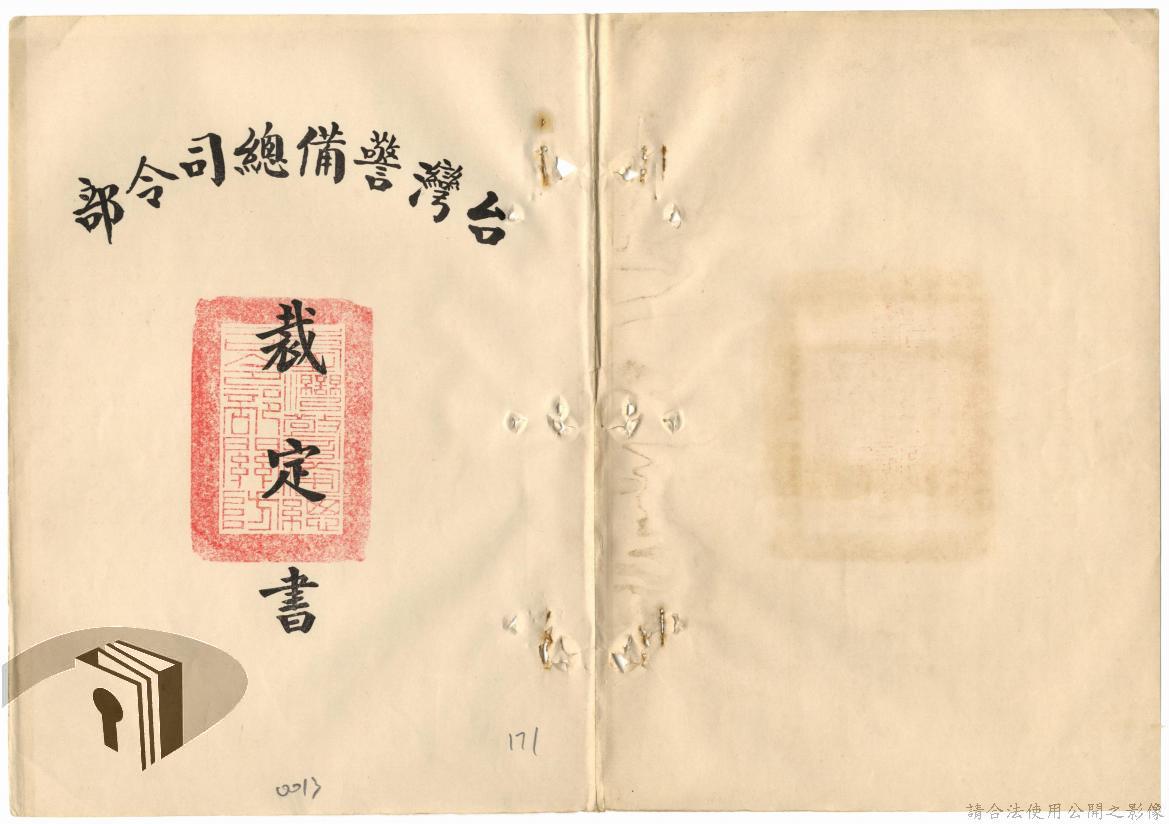 台灣警備總司令部
裁定書
171
0013
請合法使用公開之影像